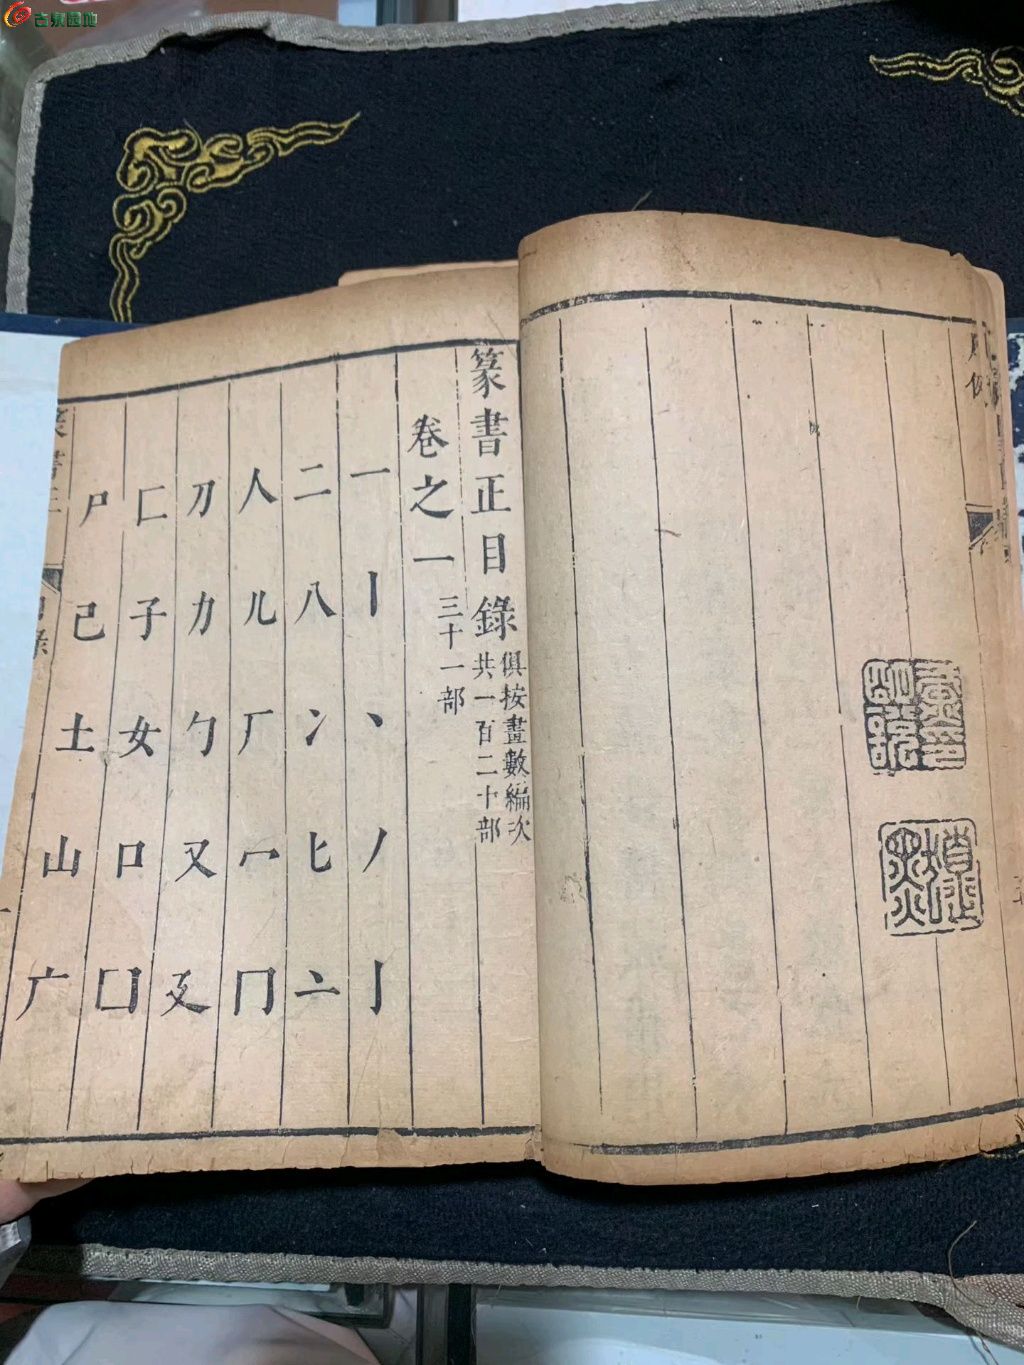 古泉园地
篆書正目錄
俱按畫數編次
共一百二十部
卷之一
三十一部
一丨丶丿亅
二八冫匕亠
人儿厂冖冂
刀力勹又廴
匚子女口凵
尸己土山广